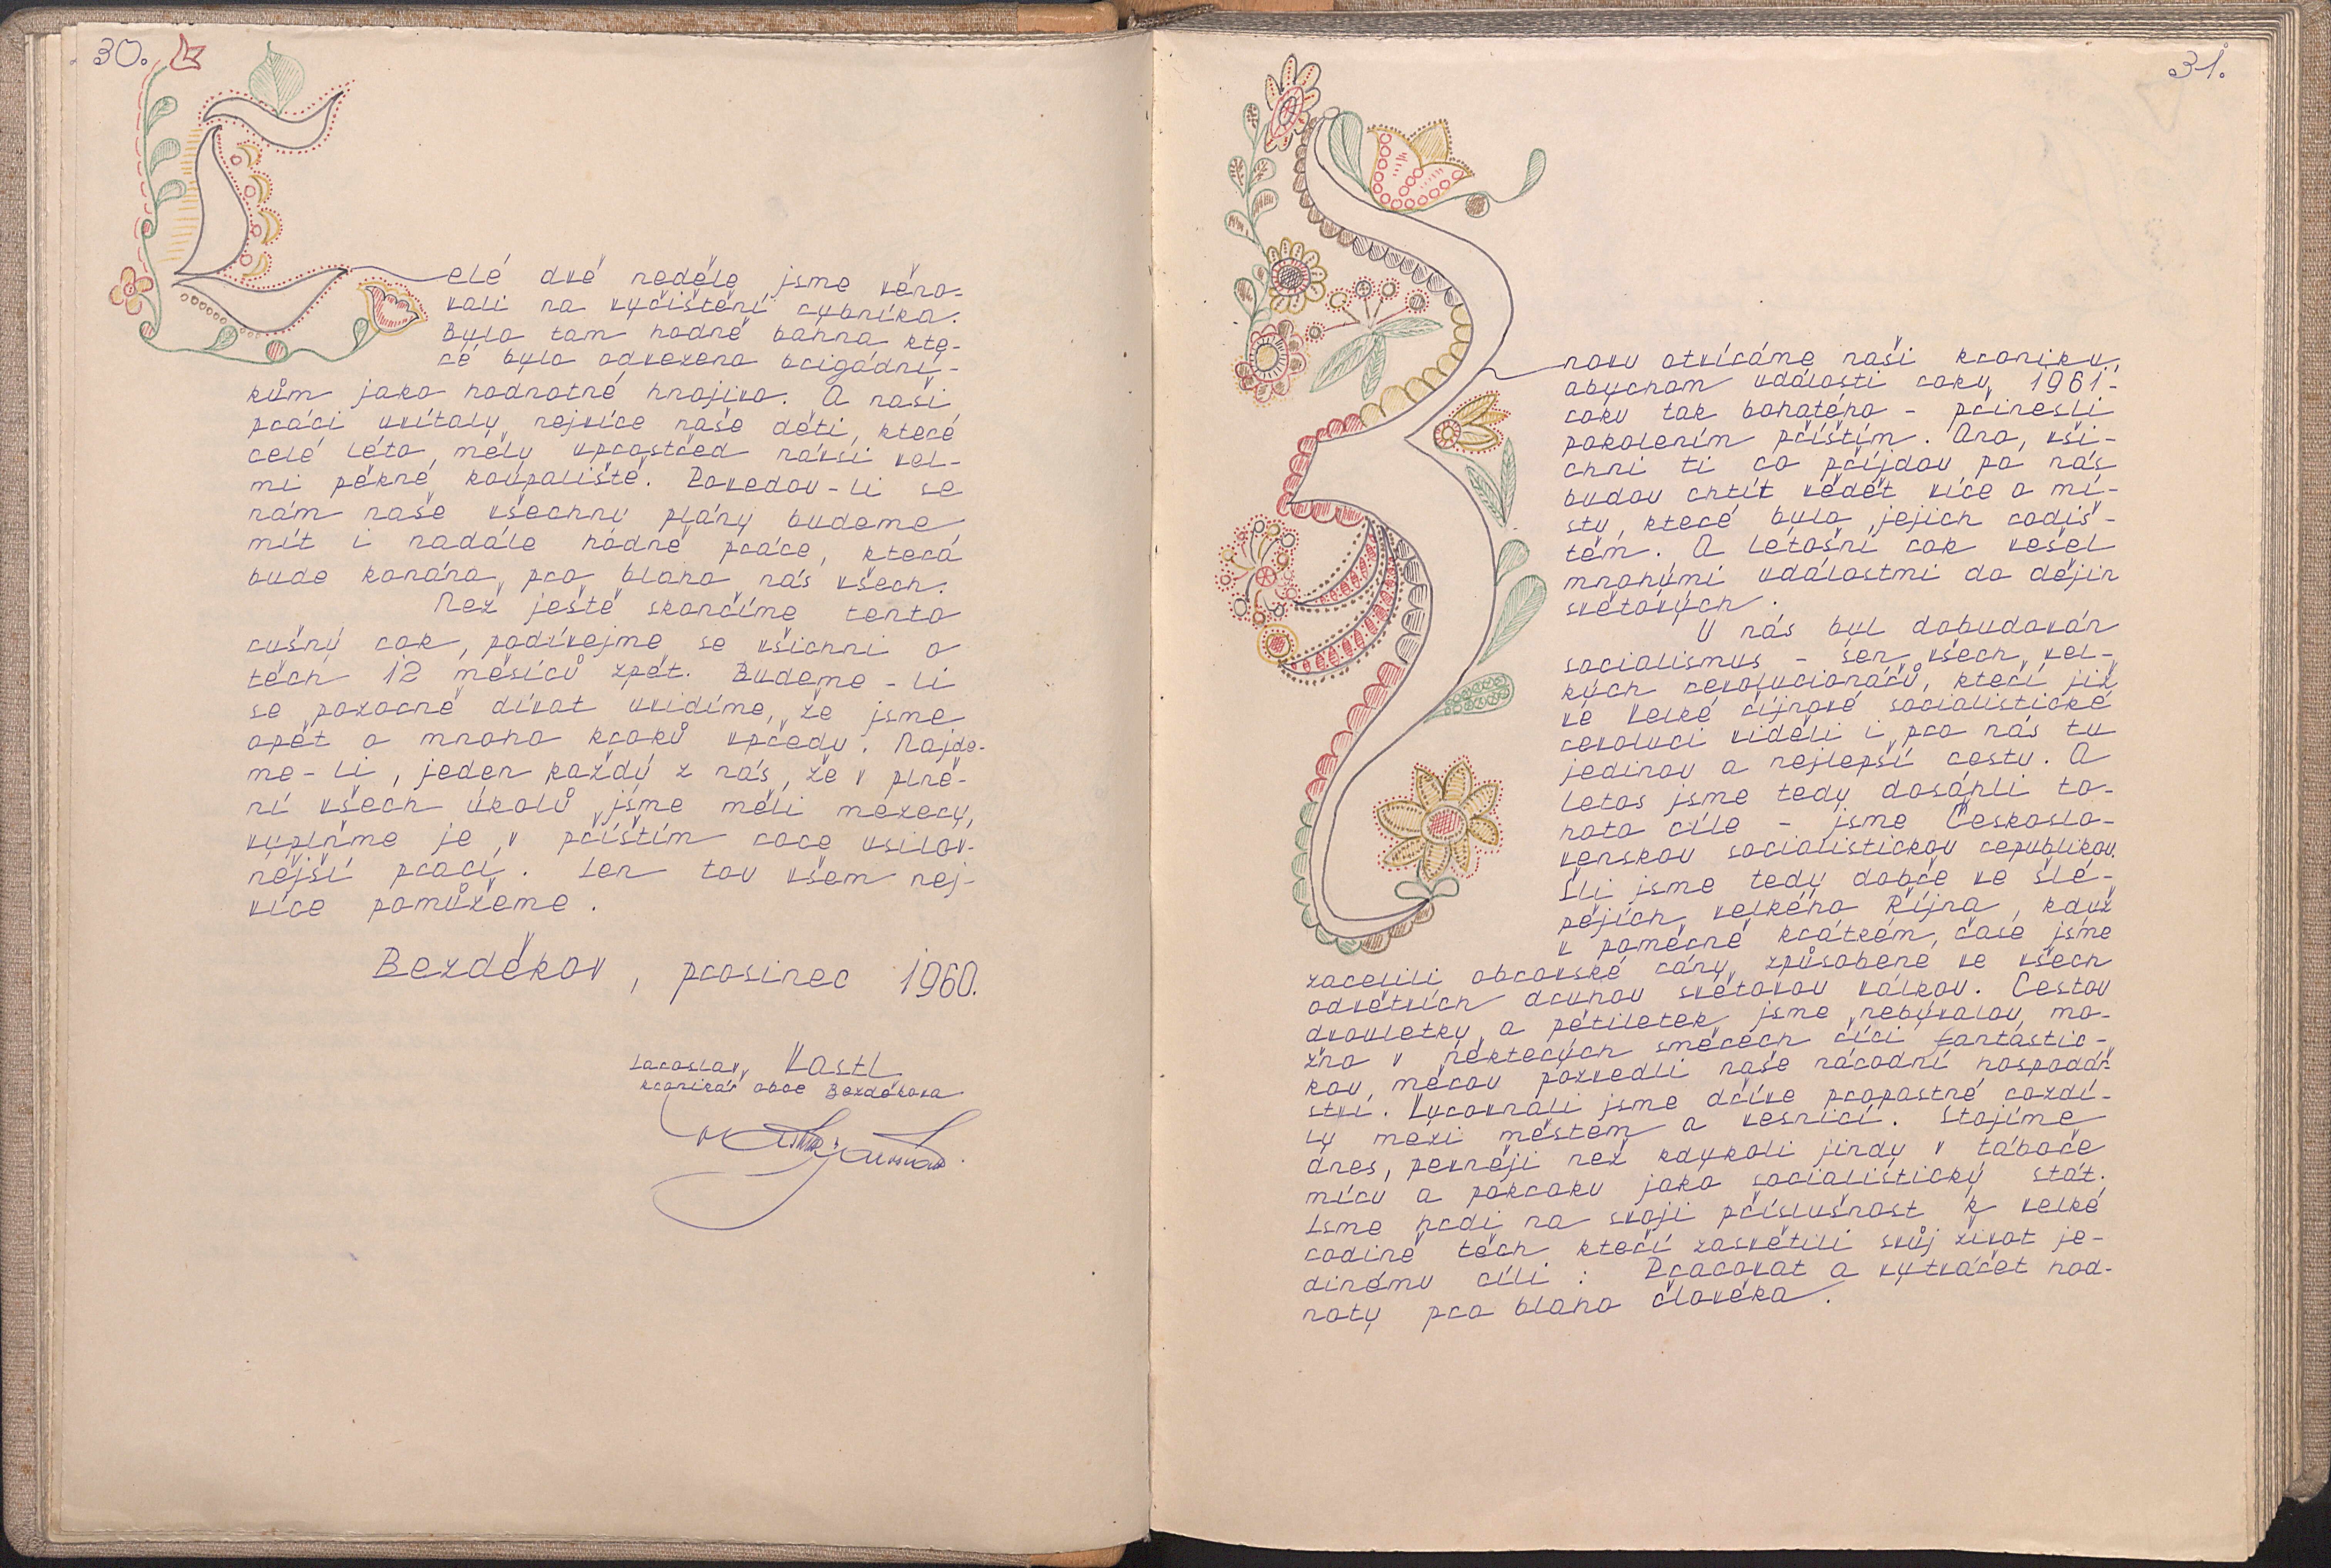 30.
Celé dvě neděle jsme věno-
vali na vyčištění rybníka.
Bylo tam hodně bahna kte-
ré bylo odvezeno brigádní-
kům jako hodnotné hnojivo. A naši
práci uvítaly nejvíce naše děti, které
celé léto měly uprostřed návsi vel-
mi pěkné koupaliště. Povedou-li se
nám naše všechny plány budeme
mít i nadále hodně práce, která
bude konána pro blaho nás všech.
Než ještě skončíme tento
rušný rok, podívejme se všichni o
těch 12 měsíců zpět. Budeme-li
se pozorně dívat uvidíme, že jsme
opět o mnoho kroků vpředu. Najde-
me-li, jeden každý z nás, že v plně-
ní všech úkolů jsme měli mezery,
vyplňme je v příštím roce usilov-
nější prací. Jen tou všem nej-
více pomůžeme.
Bezděkov, prosinec 1960.
Jaroslav Vastl
kronikář obce Bezděkova
31.
Znovu otvíráme naši kroniku,
abychom události roku 1961 -
roku tak bohatého - přinesli
pokolením příštím. Ano, vši-
chni ti co přijdou po nás
budou chtít vědět více o mí-
stu, které bylo jejich rodiš-
těm. A letošní rok vešel
mnohými událostmi do dějin
světových.
U nás byl dobudován
socialismus - sen všech vel-
kých revolucionářů, kteří již
ve Velké říjnové socialistické
revoluci viděli i pro nás tu
jedinou a nejlepší cestu. A
letos jsme tedy dosáhli to-
hoto cíle - jsme Českoslo-
venskou socialistickou republikou.
Šli jsme tedy dobře ve šlé-
pějích velkého Října, když
v poměrně krátkém čase jsme
zacelili obrovské rány způsobené ve všech
odvětvích druhou světovou válkou. Cestou
dvouletky a pětiletek jsme nebývalou mo-
žno v některých směrech říci fantastic-
kou měrou pozvedli naše národní hospodář-
ství. Vyrovnali jsme dříve propastné rozdí-
ly mezi městem a vesnicí. Stojíme
dnes, pevněji než kdykoli jindy v táboře
míru a pokroku jako socialistický stát.
Jsme hrdi na svoji příslušnost k velké
rodině těch kteří zasvětili svůj život je-
dinému cíli : Pracovat a vytvářet hod-
noty pro blaho člověka.